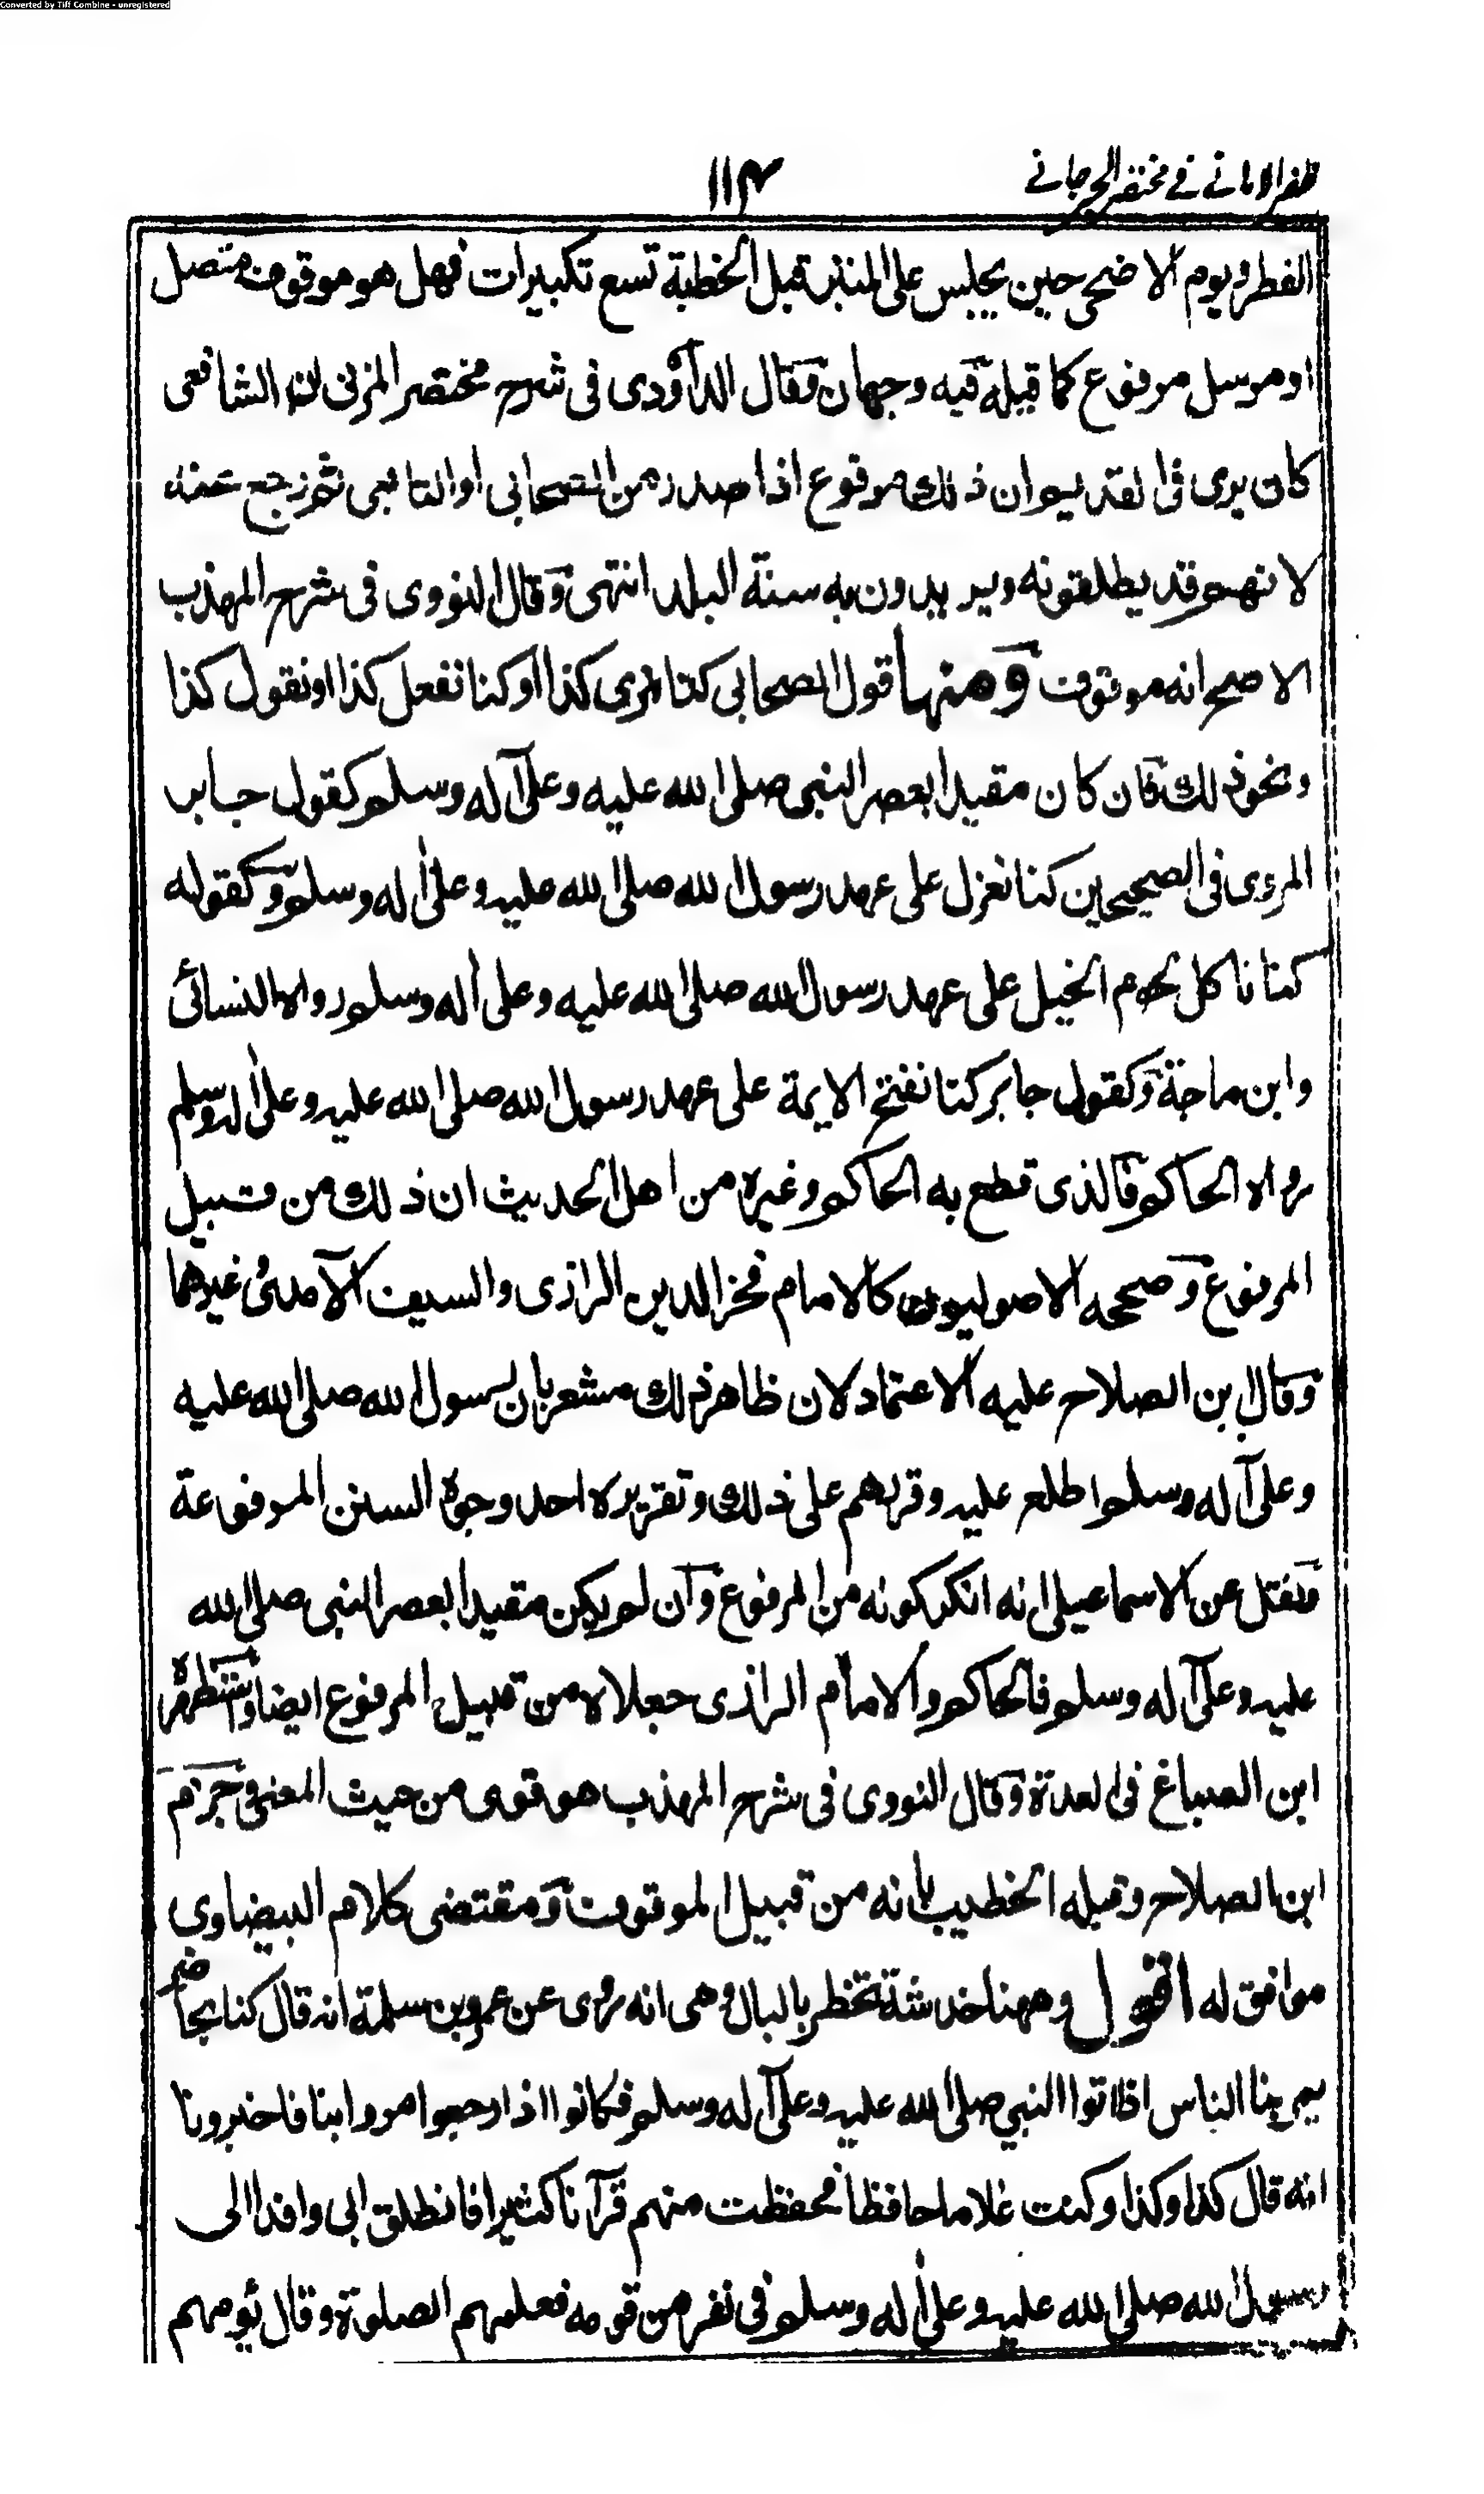 Converted by Tiff Combine - unregistered
ظفر الامانے فے مختصر الجرجانے
۱۱۴
الفطر ويوم الاضحى حين يجلس على المنبر قبل الخطبة تسع تكبيرات فهل هو موقوف متصل
او مرسل مرفوع كما قبله فيه وجهان فقال الداؤدى فى شرح مختصر المزنى ان الشافعى
كان يرى فى القديم ان ذلك مرفوع اذا صدر من الصحابى او التابعى ثم رجع عنه
لانهم قد يطلقونه ويريدون به سنة البلد انتهى وقال النووى فى شرح المهذب
الاصح انه موقوف ومنها قول الصحابى كنا نرى كذا او كنا نفعل كذا او نقول كذا
ونحو ذلك فان كان مقيدا بعصر النبى صلى الله عليه وعلى آله وسلم كقول جابر
المروى فى الصحيحين كنا نعزل على عهد رسول الله صلى الله عليه وعلى اٰله وسلم وكقوله
كنا ناكل لحوم الخيل على عهد رسول الله صلى الله عليه وعلى اٰله وسلم رواه النسائى
وابن ماجة وكقول جابر كنا نفتح الايمة على عهد رسول الله صلى الله عليه وعلى اٰله وسلم
رواه الحاكم فالذى قطع به الحاكم وغيره من اهل الحديث ان ذلك من قبيل
المرفوع وصححه الاصوليون كالامام فخر الدين الرازى والسيف الآمدى وغيرهما
وقال ابن الصلاح عليه الاعتماد لان ظاهر ذلك مشعر بان رسول الله صلى الله عليه
وعلى آله وسلم اطلع عليه وقررهم على ذلك وتقريره احد وجوه السنن المرفوعة
ونقل عن الاسماعيلى انه انكر كونه من المرفوع وان لم يكن مقيدا بعصر النبى صلى الله
عليه وعلى آله وسلم فالحاكم والامام الرازى جعلاه من قبيل المرفوع ايضا واستظهره
ابن الصباغ فى العدة وقال النووى فى شرح المهذب هو قوى من حيث المعنى وجزم
ابن الصلاح وقبله الخطيب بانه من قبيل الموقوف ومقتضى كلام البيضاوى
موافق له اقول وههنا خدشة تخطر بالبال وهى انه روى عن عمرو بن سلمة انه قال كنا بحاضر
يمر بنا الناس اذا اتوا النبى صلى الله عليه وعلى آله وسلم فكانوا اذا رجعوا مروا بنا فاخبرونا
انه قال كذا وكذا وكنت غلاما حافظا فحفظت منهم قرآنا كثيرا فانطلق ابى وافدا الى
رسول الله صلى الله عليه وعلى اٰله وسلم فى نفر من قومه فعلمهم الصلوة وقال يؤمهم